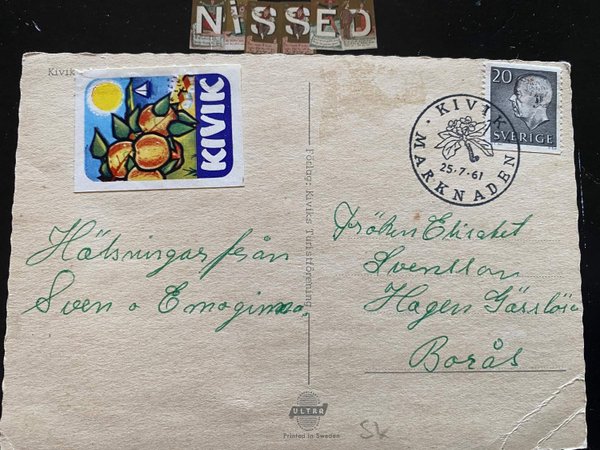 NISSED
Kivik
KIVIK
20
SVERIGE
KIVIK
MARKNADEN
25-7-61
Förlag: Kiviks Turistförening
Hälsningar från
Sven o
Fröken Elisabet
Svensson
Hagen
Borås
ULTRA
Printed in Sweden
SK